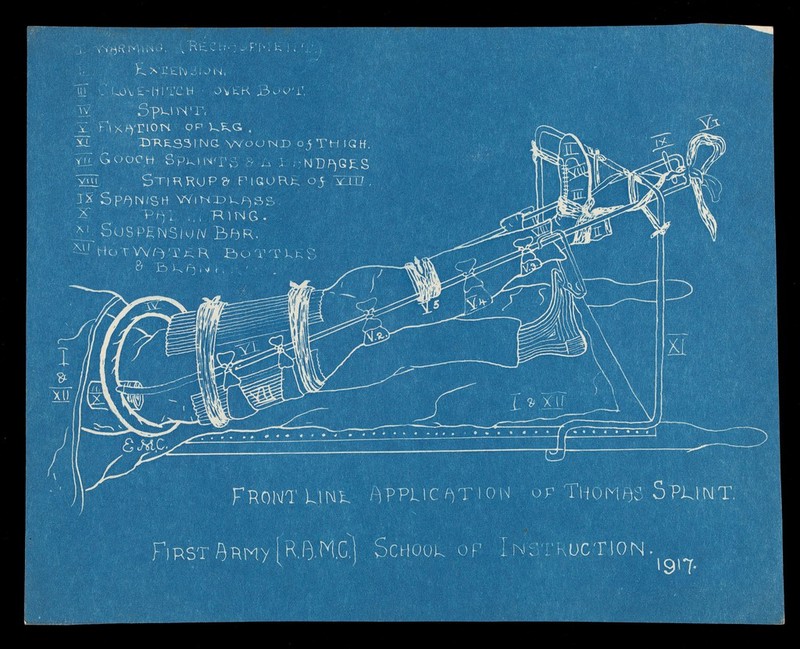 I WARMING. (RECHAUFMENT)
II EXTENSION.
III CLOVE-HITCH OVER BOOT.
IV SPLINT.
V FIXATION OF LEG.
VI DRESSING WOUND of THIGH.
VII GOOCH SPLINTS & Δ BANDAGES
VIII STIRRUP & FIGURE OF VIII.
IX SPANISH WINDLASS
X RING.
XI SUSPENSION BAR.
XII HOT WATER BOTTLES
&
VI
IX
II
III
VIII
I
V.3
V.4
V5
V.2
IV
VI
VII
XI
I
&
XII
X
I & XII
E.M.C.
FRONT LINE APPLICATION OF THOMAS SPLINT.
FIRST ARMY (R.A.M.C.) SCHOOL OF INSTRUCTION.
1917.